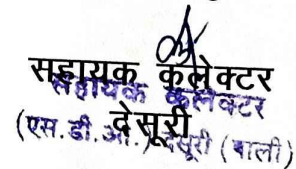 सहायक कलेक्टर
सहायक कलेक्टर
देसूरी
(एस. डी. ओ.) देसूरी (पाली)